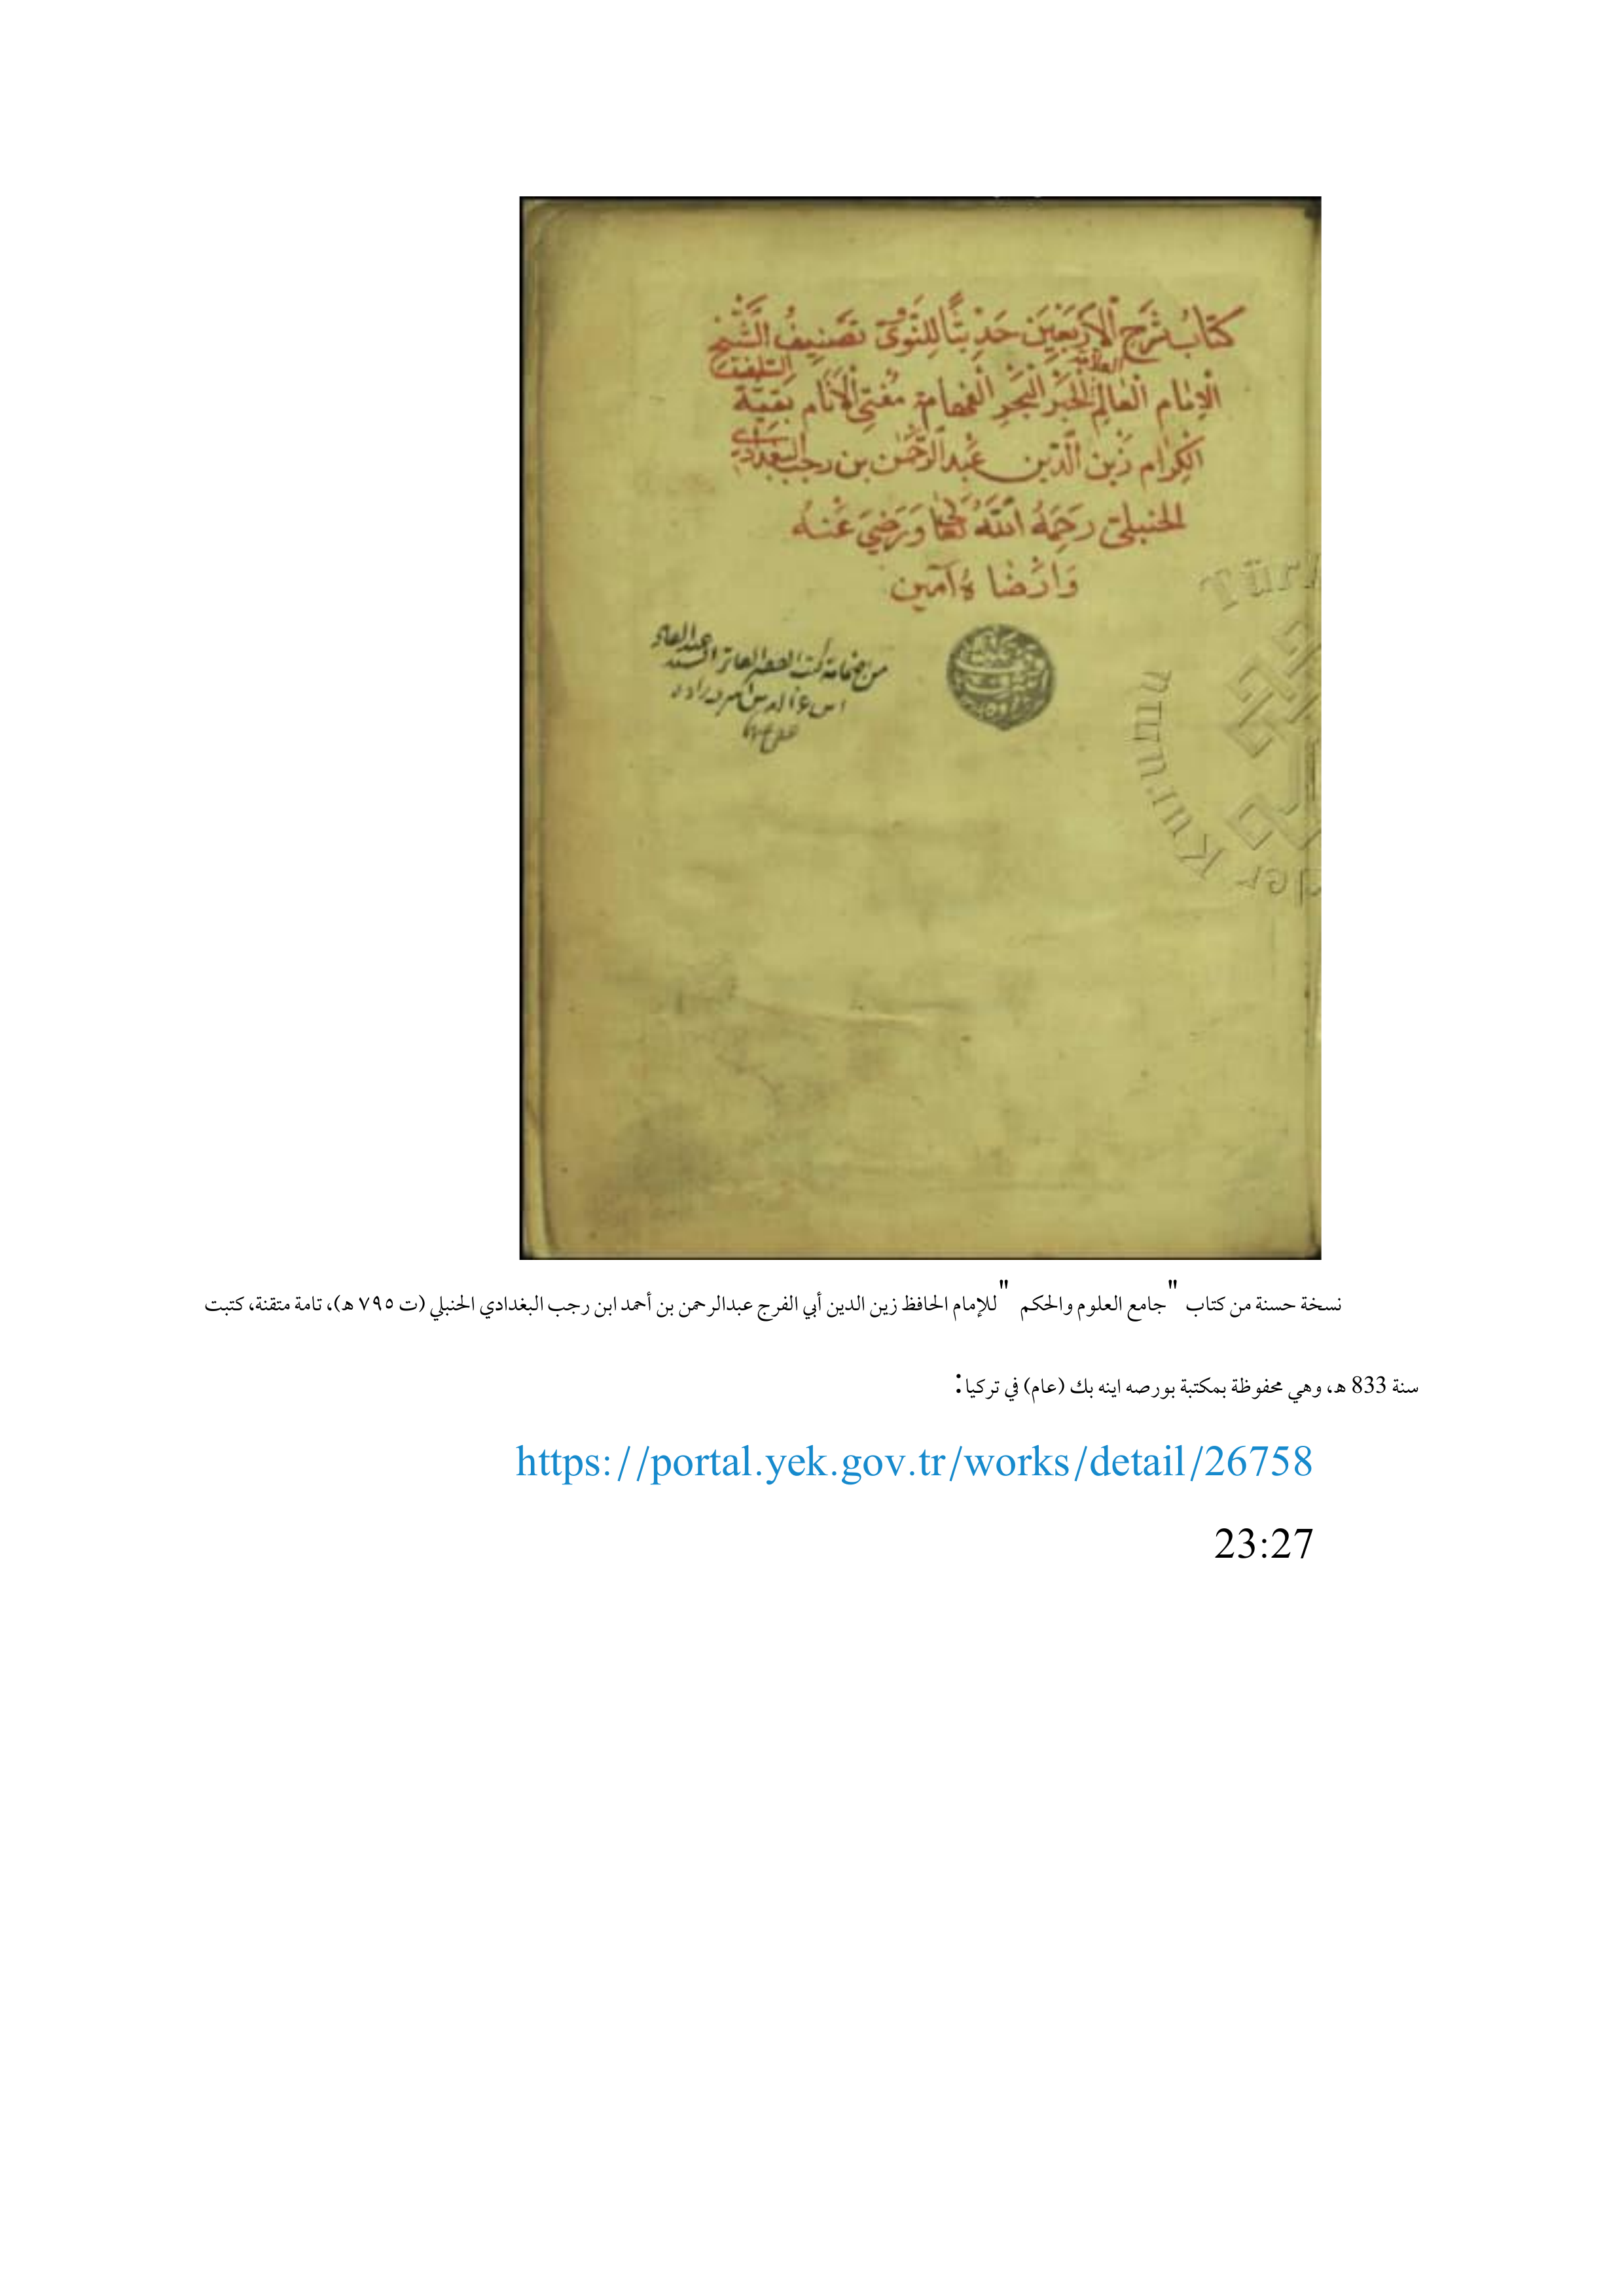 كتابُ شرح الأربعين حديثًا للنووى تصنيفُ الشيخ
الإمام العالم العلامة الحبر البحر الفهامة مفتى الأنام بقية السلف
الكرام زين الدين عبد الرحمن بن رجب البغدادي
الحنبلى رحمهُ الله تعالى ورضي عنهُ
وارضاهُ آمين
من
نسخة حسنة من كتاب "جامع العلوم والحكم" للإمام الحافظ زين الدين أبي الفرج عبدالرحمن بن أحمد ابن رجب البغدادي الحنبلي (ت ٧٩٥ هـ)، تامة متقنة، كتبت
سنة 833 هـ، وهي محفوظة بمكتبة بورصه اينه بك (عام) في تركيا:
https://portal.yek.gov.tr/works/detail/26758
23:27